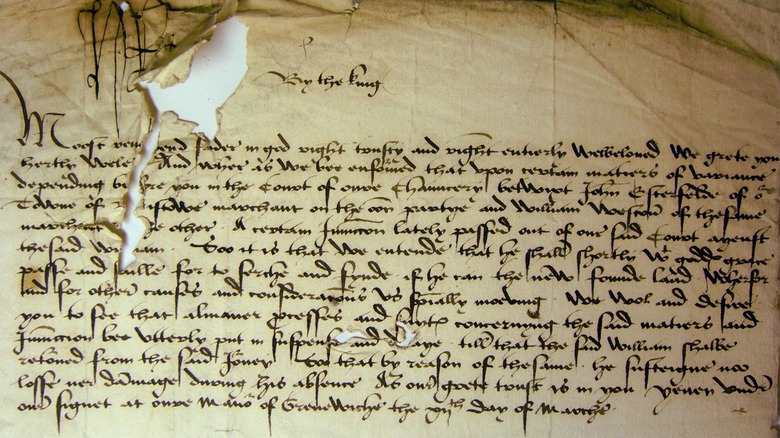 By the king
Moost end fader in god right trusty and right entierly welbeloved We grete you
hertly wele And wher as we bee enfourmed that upon certain matiers of variance
depending be re you in the Court of oure Chauncery betwixt John Esterfelde of o
Towne of istowe marchant on the oon partye and William Weston of thesame
marchant e other . A certain Iniunccon lately passed out of our said Court ayenst
thesaid Wi am . Soo it is that we entende that he shall shortly wt godds grace
passe and saille for to serche and fynde if he can the new founde land Wherfor
and for other causes and consideracons us spially moeving . We wol and desire
you to see that almaner processes and suyts concernyng the said matiers and
Iniunccion bee utterly put in suspense and d aye . till that the said William shalbe
retorned from the said Iorney . Soo that by reason of thesame he susteigne noo
losse ner dammage during his absence . As our grete trust is in you . Yeven under
our signet at oure Manoir of Grenewiche the day of Marche .